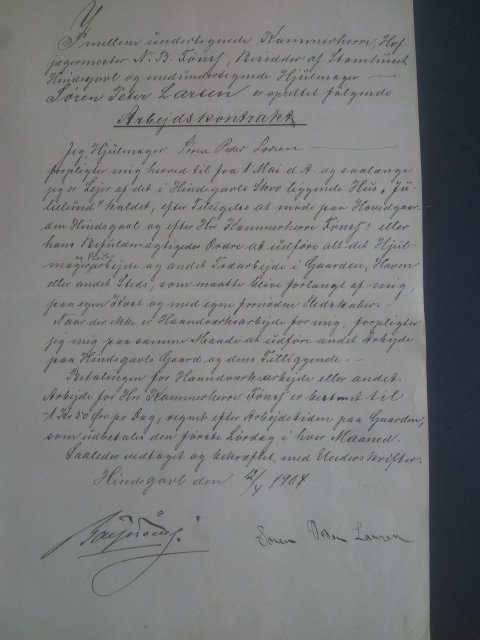 Imellem undertegnede Kammerherre, Hof
jægermester N. B. Fønss, Besidder af Stamhuset
Hindsgavl og medundertegnede Hjulmager —
Søren Peter Larsen er oprettet følgende
Arbejdskontrakt
Jeg Hjulmager Søren Peder Larsen —
forpligter mig herved til fra 1 Mai d. A. og saalænge
jeg er Lejer af det i Hindsgavls Skov liggende Hus, „Ju
lielund" kaldet, efter Tilsigelse at møde paa Hovedgaar
den Hindsgavl og efter Hr. Kammerherre Fønss's eller
hans Befuldmægtigedes Ordre at udføre alt det Hjul-
magerarbejde og andet Træarbejde i Gaarden, Haven
eller andet Steds, som maatte blive forlangt af mig,
paa egen Kost og med egne fornødne Redskaber. -
Naar der ikke er Haandværksarbejde for mig, forpligter
jeg mig paa samme Maade at udføre andet Arbejde
paa Hindsgavls Gaard og dens Tilliggende. -
Betalingen for Haandværksarbejde eller andet
Arbejde for Hr. Kammerherre Fønss er bestemt til
1 Kr 50 Øre pr Dag, regnet efter Arbejdstiden paa Gaarden,
som udbetales den første Lørdag i hver Maaned.
Saaledes vedtaget og bekræftet med Underskrifter.
Hindsgavl den 1904
Søren Peder Larsen